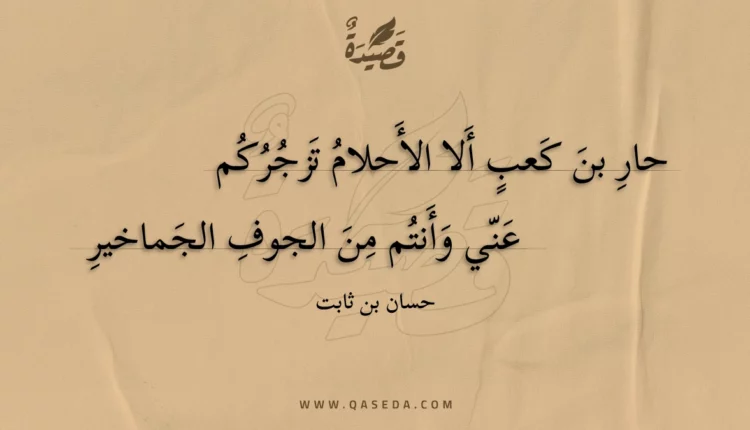 قَصِيدَةٌ
حارِ بنَ كَعبٍ أَلا الأَحلامُ تَزجُرُكُم
عَنّي وَأَنتُم مِنَ الجوفِ الجَماخيرِ
حسان بن ثابت
WWW.QASEDA.COM